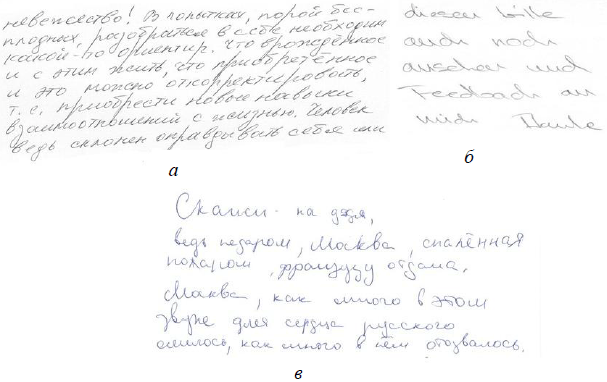 невежество! В попытках, порой бес-
плодных, разобраться в себе, необходим
какой-то ориентир. Что врождённое
и с этим жить, что приобретённое
и это можно откорректировать,
т.е. приобрести новые навыки
взаимоотношений с жизнью. Человек
ведь склонен оправдывать себя или
а
diesen bitte
auch noch
anschauen und
Feedback an
mich Danke
б
Скажи-ка дядя,
ведь недаром, Москва, спалённая
пожаром, французу отдана,
Москва, как много в этом
звуке для сердца русского
слилось, как много в нём отозвалось.
в